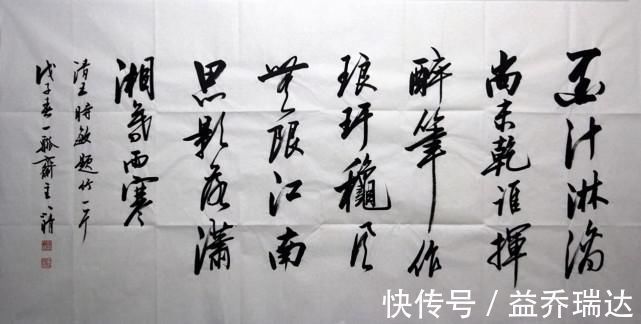 墨汁淋漓
尚未乾誰揮
醉筆作
琅玕龝风
無限江南
思影落瀟
湘暮雨寒
清王時敏題竹一首
戊子春一瓢齋主
快传号 / 益乔瑞达